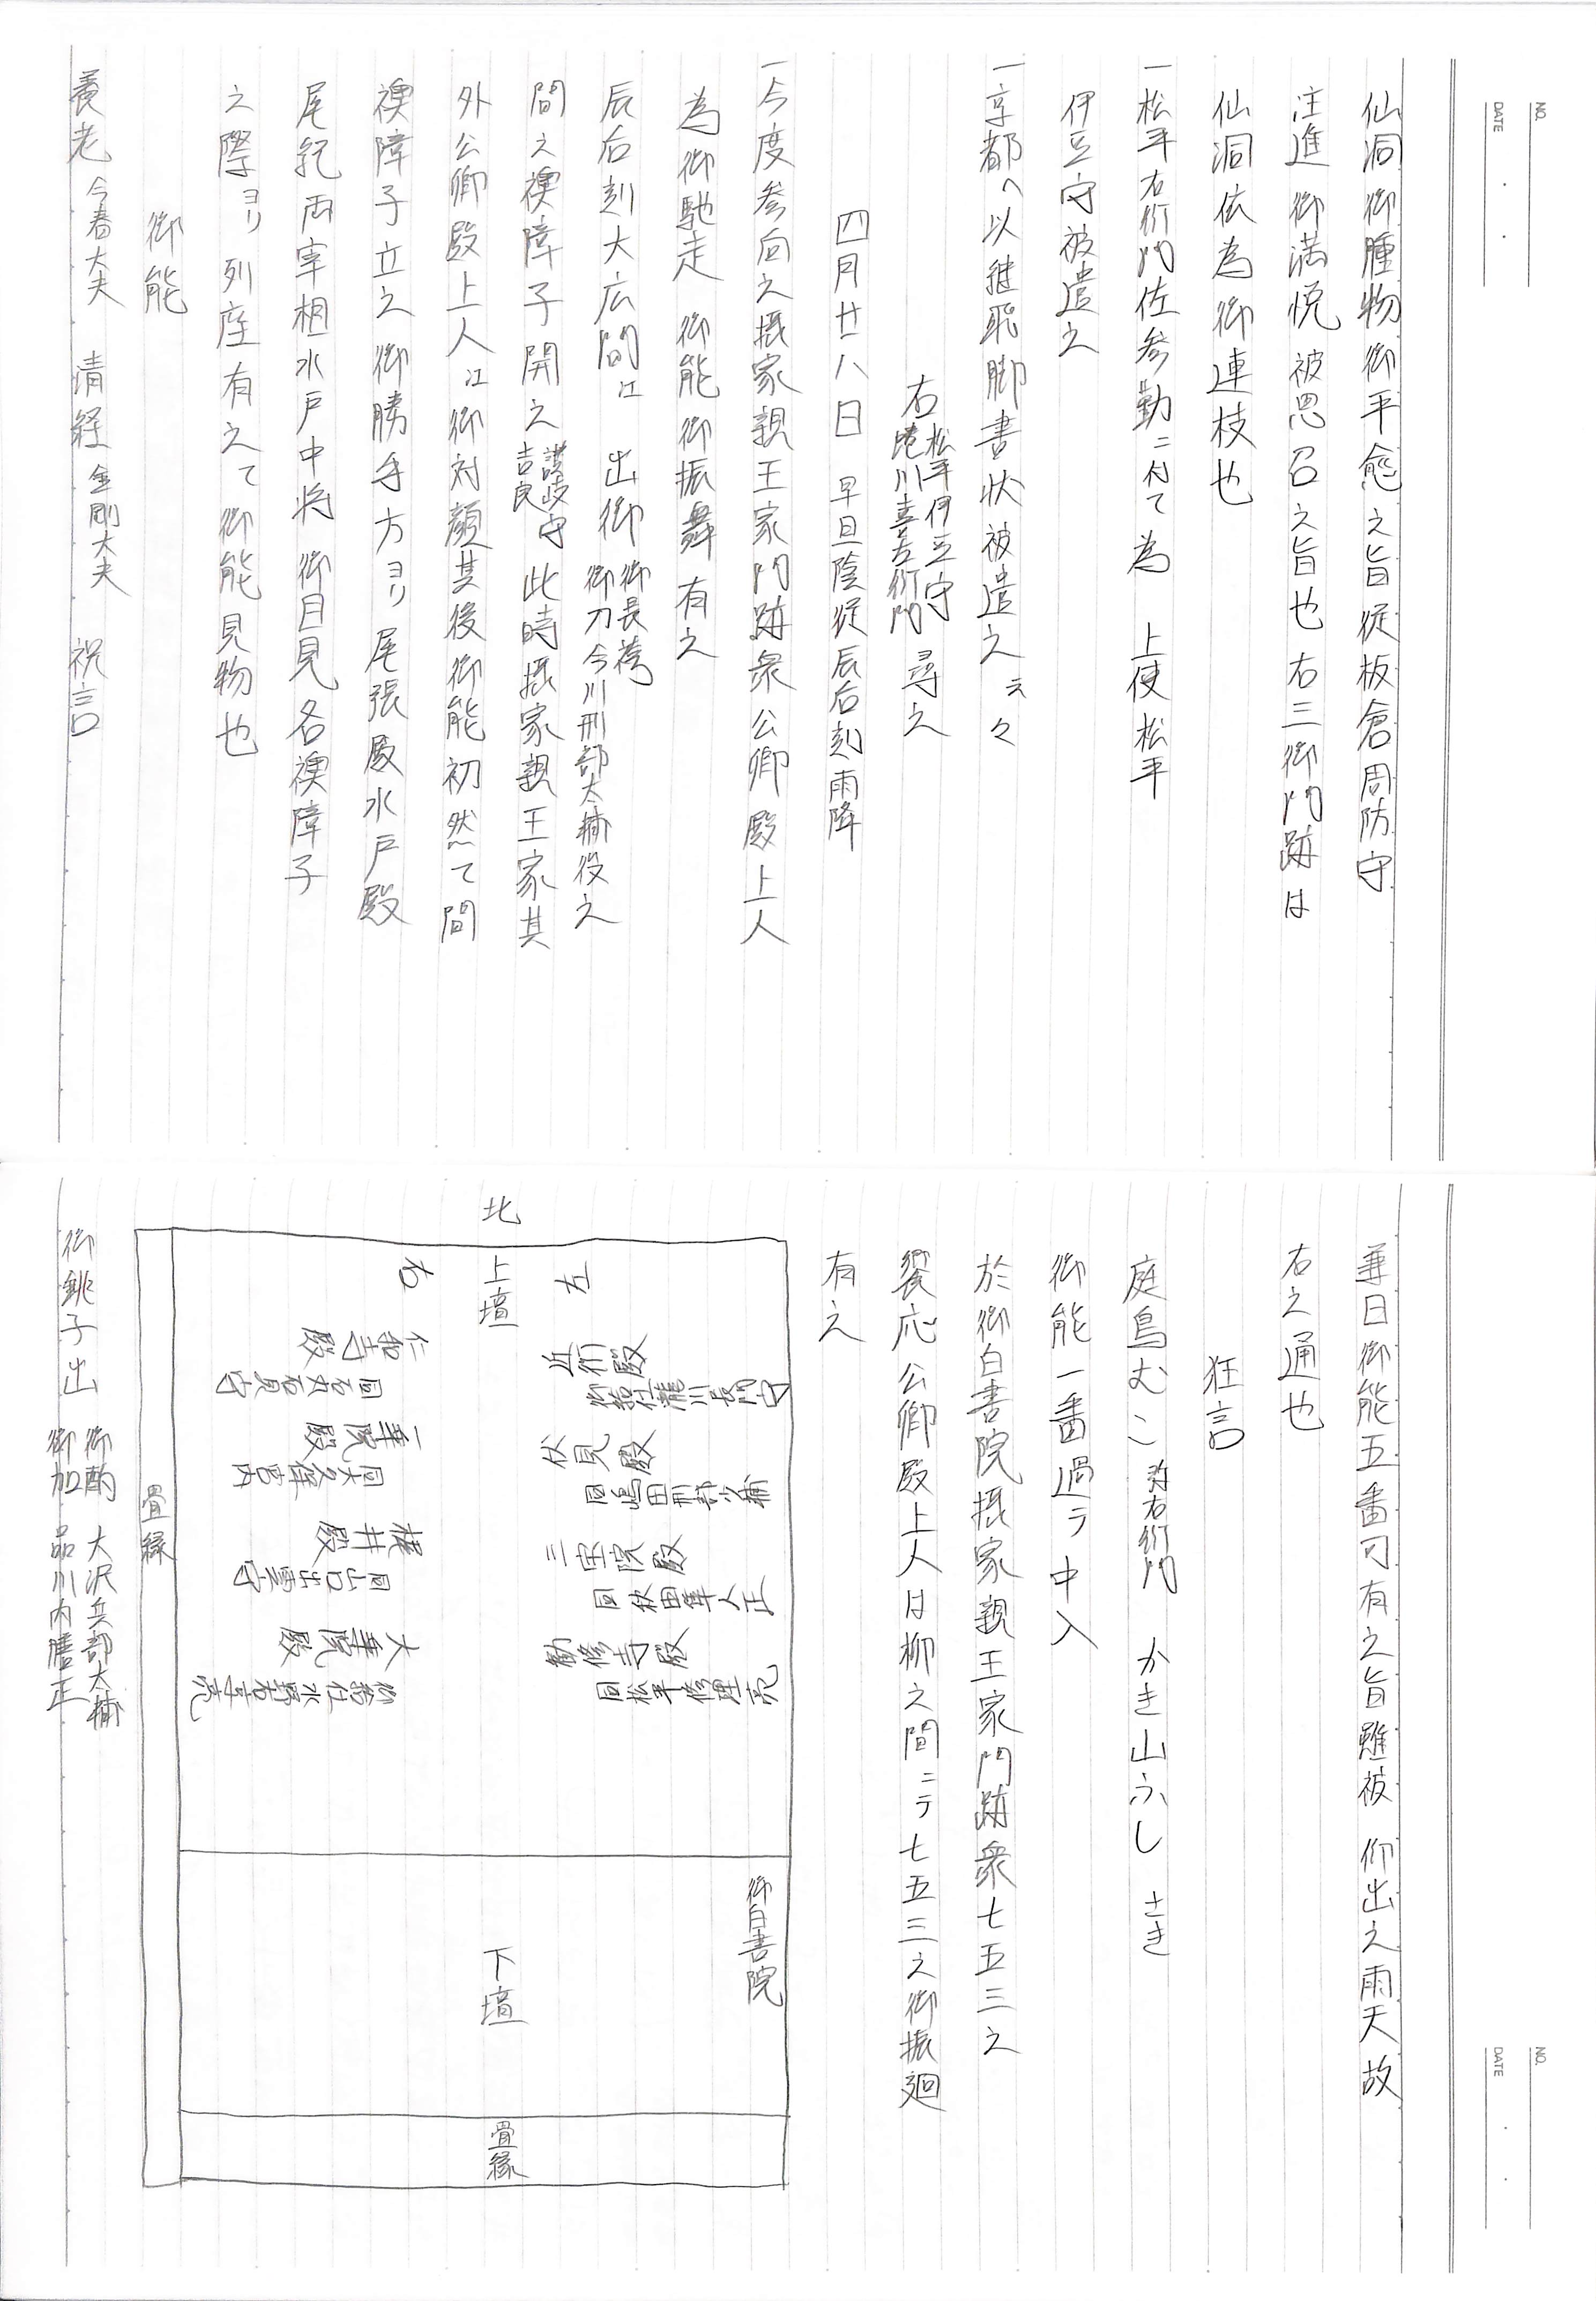 NO.
DATE
仙洞御腫物御平愈之旨従板倉周防守
注進 御満悦被思召之旨也 右三御門跡は
仙洞依為御連枝也
一松平右衛門佐参勤ニ付て為 上使松平
伊豆守被遣之
一京都へ以継飛脚書状被遣之云々
右 松平伊豆守 尋之
四月廿八日 早旦陰従辰后刻雨降
一今度参向之摂家親王家門跡衆公卿殿上人
為御馳走 御能御振舞有之
辰后刻大広間江 出御 御長袴
御刀今川刑部太輔役之
間之襖障子開之 讃岐守
吉良 此時摂家親王家其
外公卿殿上人江御対顔其後御能初然て間
襖障子立之御勝手方ヨリ尾張殿水戸殿
尾紀両宰相水戸中将 御目見各襖障子
之際ヨリ列座有之て御能見物也
御能
養老 今春大夫 清経 金剛大夫 祝言
NO.
DATE
兼日御能五番可有之旨雖被 仰出之雨天故
右之通也
狂言
庭鳥むこ 弥右衛門 かき山ふし さき
御能一番過テ中入
於御白書院摂家親王家門跡衆七五三之
饗応公卿殿上人は柳之間ニテ七五三之御振廻
有之
北
上壇
左
右
近衛殿
伏見殿
同嶋田刑部少輔
三宝院殿
同秋田隼人正
勧修寺殿
同松平修理亮
仁和寺殿
同石川石見守
一乗院殿
同大久保宮内
梶井殿
同山口出雲守
大乗院殿
御白書院
下壇
畳縁
畳縁
御銚子出 御酌 大沢兵部大輔
御加 品川内膳正